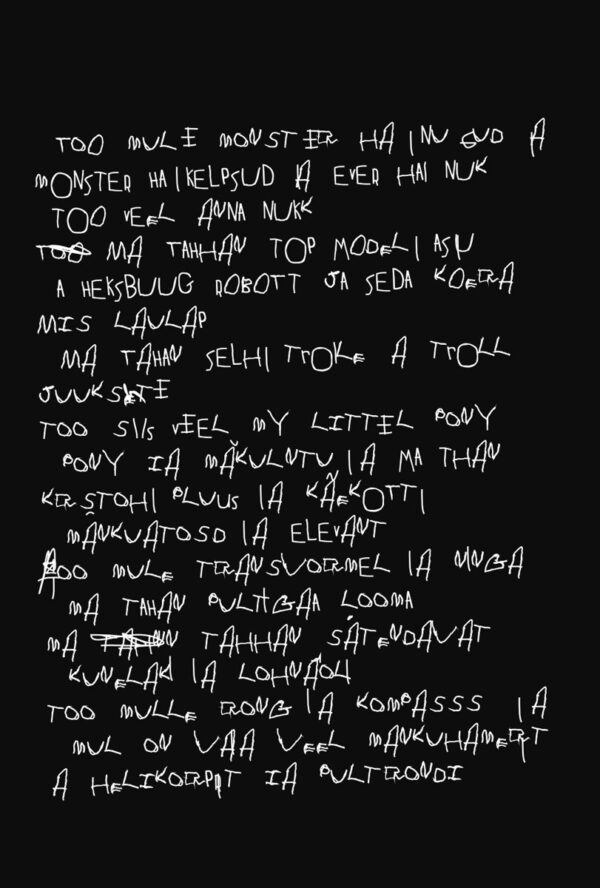 TOO MULE MONSTER HA INU OUD A
MONSTER HAIKELPSUD IA EVER HAI NUK
TOO VEEL ANNA NUKK
TOO MA TAHHAN TOP MODELI ASJU
A HEKSBUUG ROBOTT JA SEDA KOERA
MIS LAULAP
MA TAHAN SELHI TROKE A TROLL
JUUKS
TOO SIIS VEEL MY LITTEL PONY
PONY IA MÄKULNTU IA MA THAN
KIRSTOHI PLUUS IA KÄEKOTTI
MÄNKUATOSD IA ELEVANT
TOO MULE TRANSVORMEL IA NINGA
MA TAHAN PULTIGAA LOOMA
MA TAHHAN SÄTENDAVAT
KUNELAD IA
TOO MULLE RONG IA KOMPASSS IA
MUL ON VAA VEEL MANKUHAMERT
A HELIKORPIT IA PULTRONDI